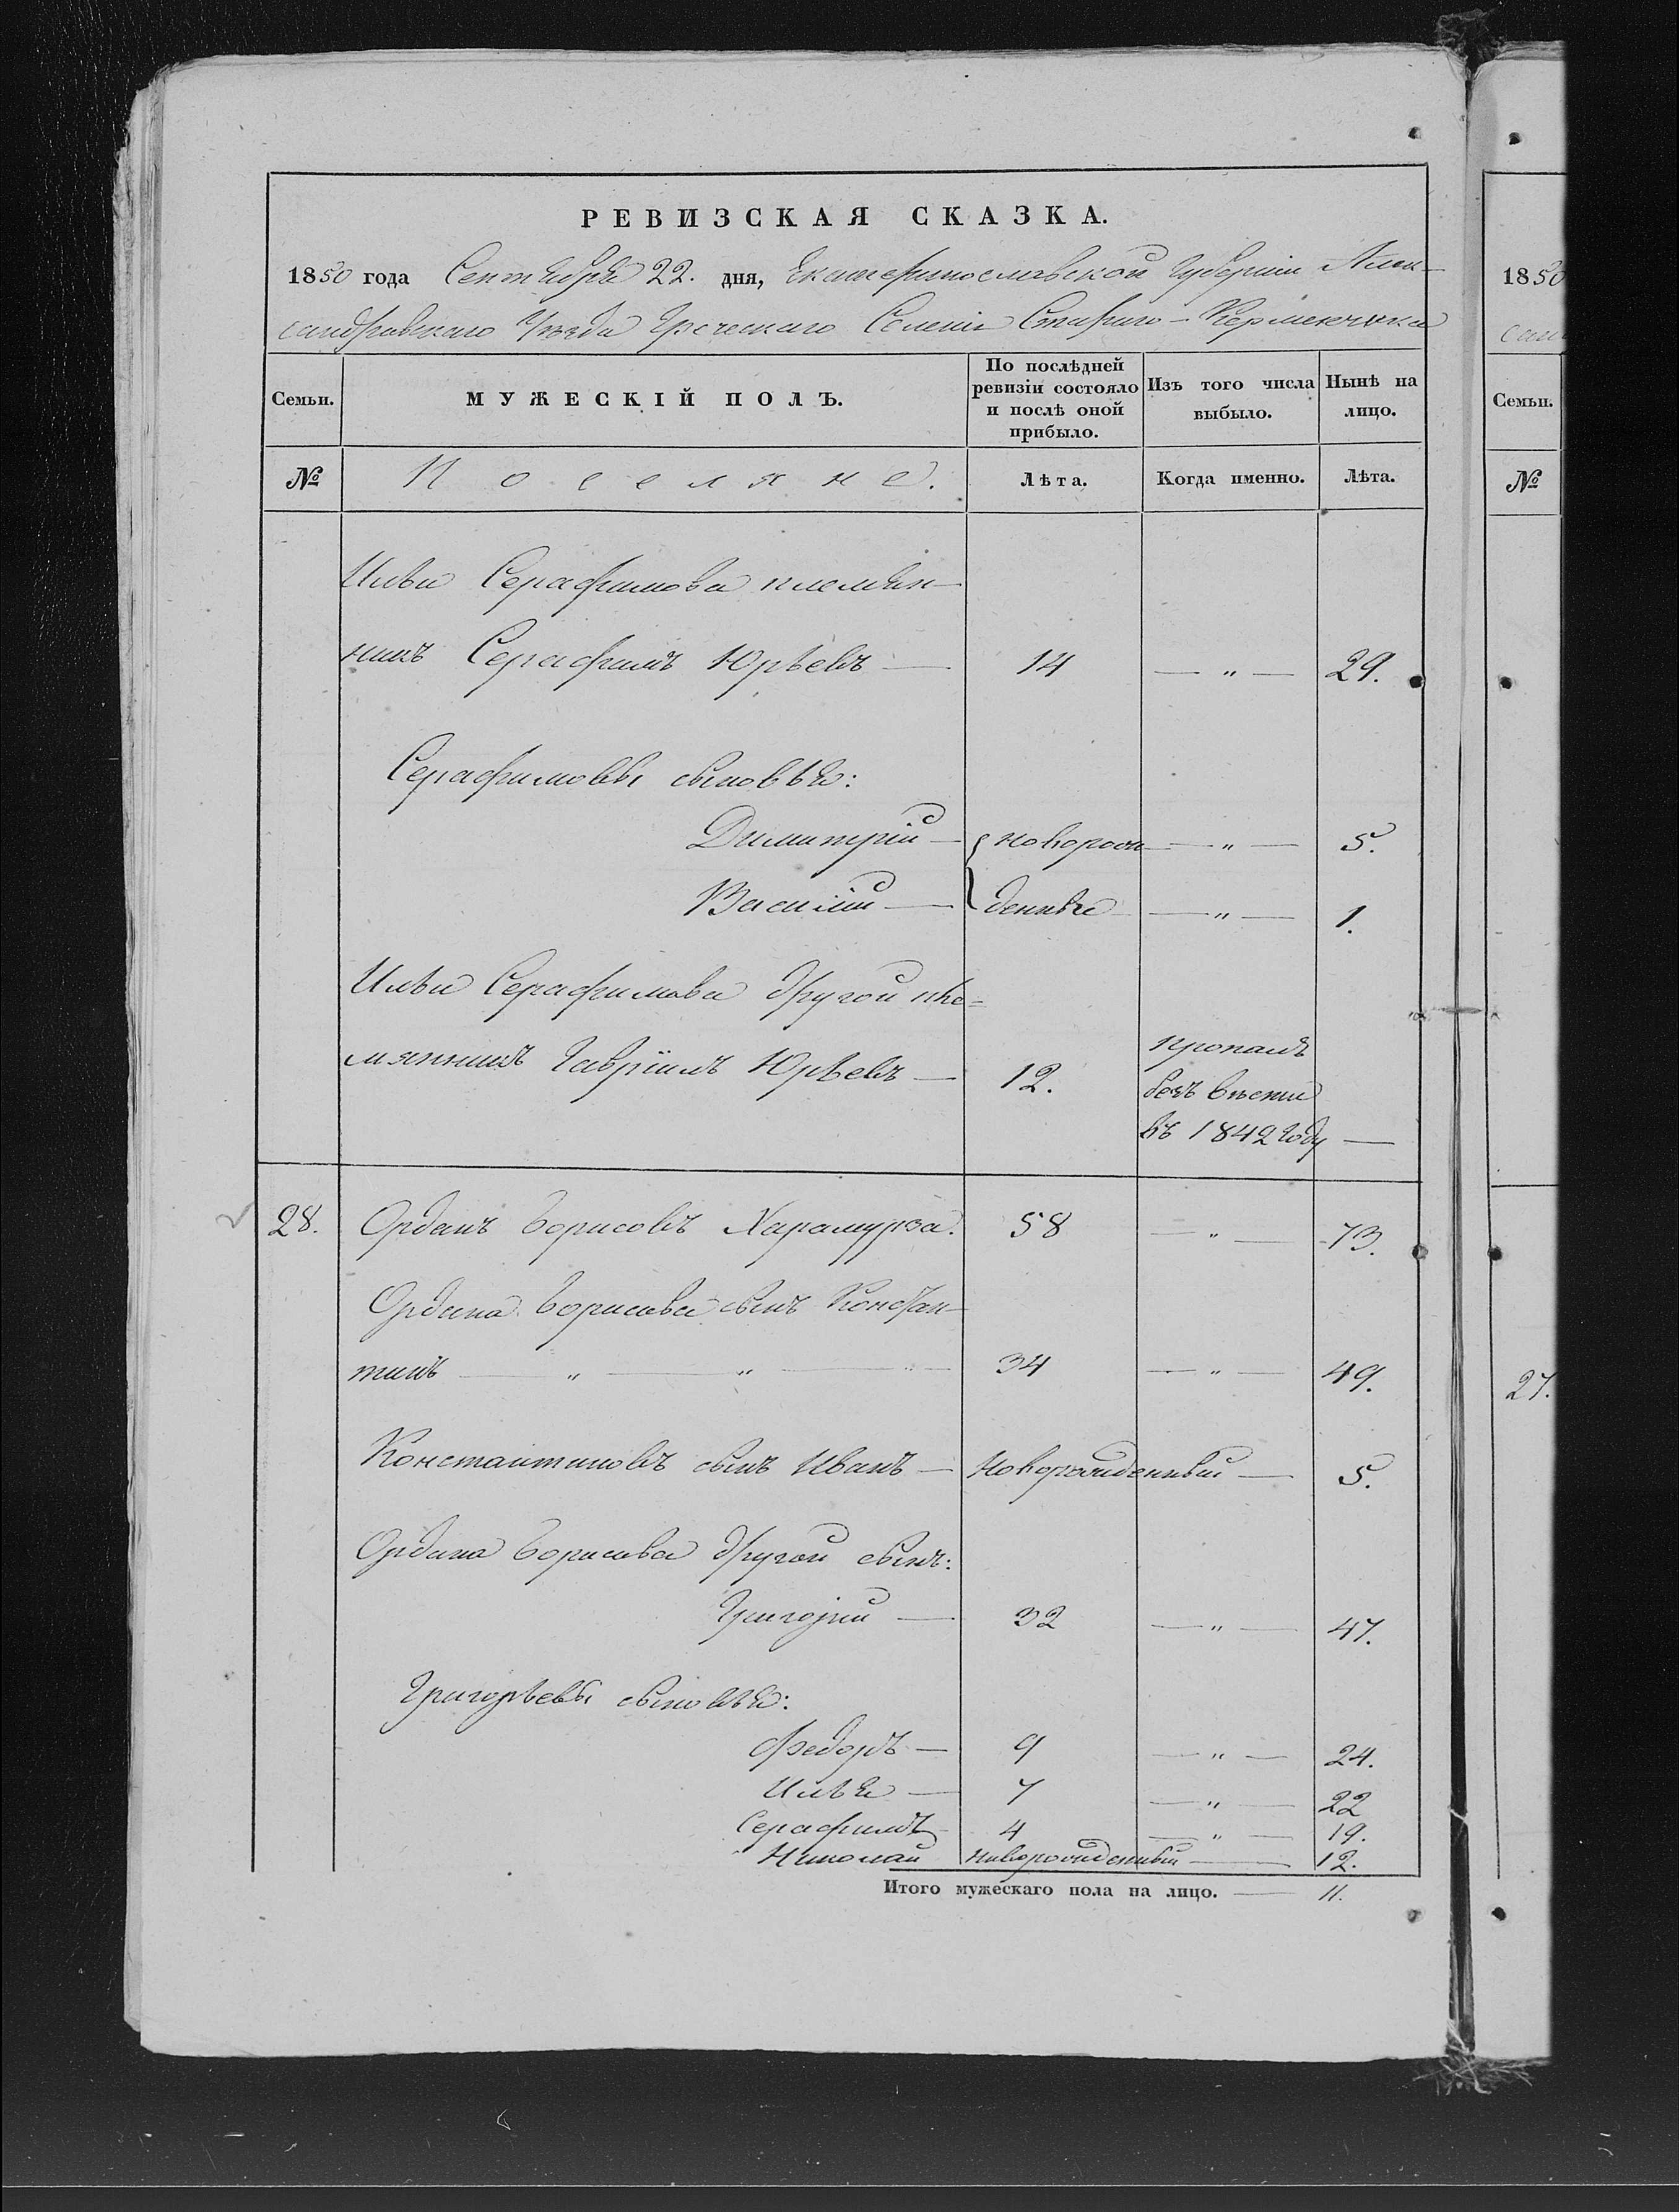 РЕВИЗСКАЯ СКАЗКА.
1850 года Сентября 22. дня, Екатеринославской Губерніи Алек-
сандровскаго Уѣзда Греческаго Селенія Стараго-Керменчика
Семьи. МУЖЕСКІЙ ПОЛЪ. По послѣдней ревизіи состояло и послѣ оной прибыло. Изъ того числа выбыло. Нынѣ на лицо.
№ Поселяне. Лѣта. Когда именно. Лѣта.
Ильи Серафимова племян-
никъ Серафимъ Юрьевъ — 14 — „ — 29.
Серафимовы сыновья:
Димитрій — новорож — „ — 5.
Василій — денные — „ — 1.
Ильи Серафимова другой пле-
мянникъ Гавріилъ Юрьевъ — 12. пропалъ
безъ вѣсти
въ 1842 году —
28. Орданъ Борисовъ Харамурза. 58 — „ — 73.
Ордана Борисова сынъ Констан-
тинъ — „ — „ — „ — 34 — „ — 49.
Константиновъ сынъ Иванъ — Новорожденный — 5.
Ордана Борисова другой сынъ:
Григорій — 32 — „ — 47.
Григорьевы сыновья:
Федоръ — 9 — „ — 24.
Илья — 7 — „ — 22
Серафимъ 4 — „ — 19.
Николай новорожденный — 12.
Итого мужескаго пола на лицо. — 11.
1850
сан
Семьи.
№
27.